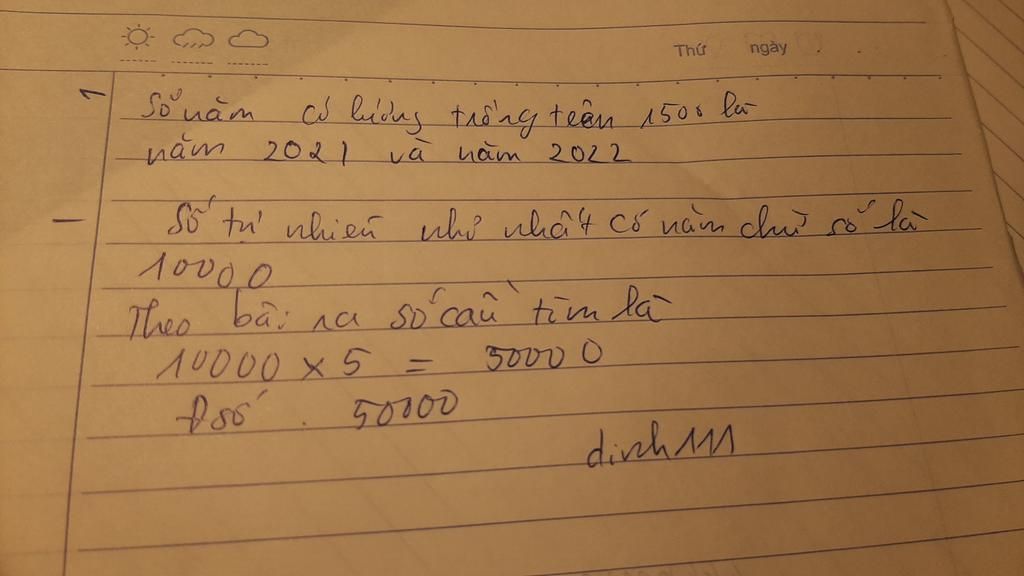 Thứ ngày
Số năm có lượng trồng trên 1500 là
năm 2021 và năm 2022
Số tự nhiên nhỏ nhất có năm chữ số là
10000
Theo bài ra số cần tìm là
10000 x 5 = 50000
Đsố . 50000
dinh111